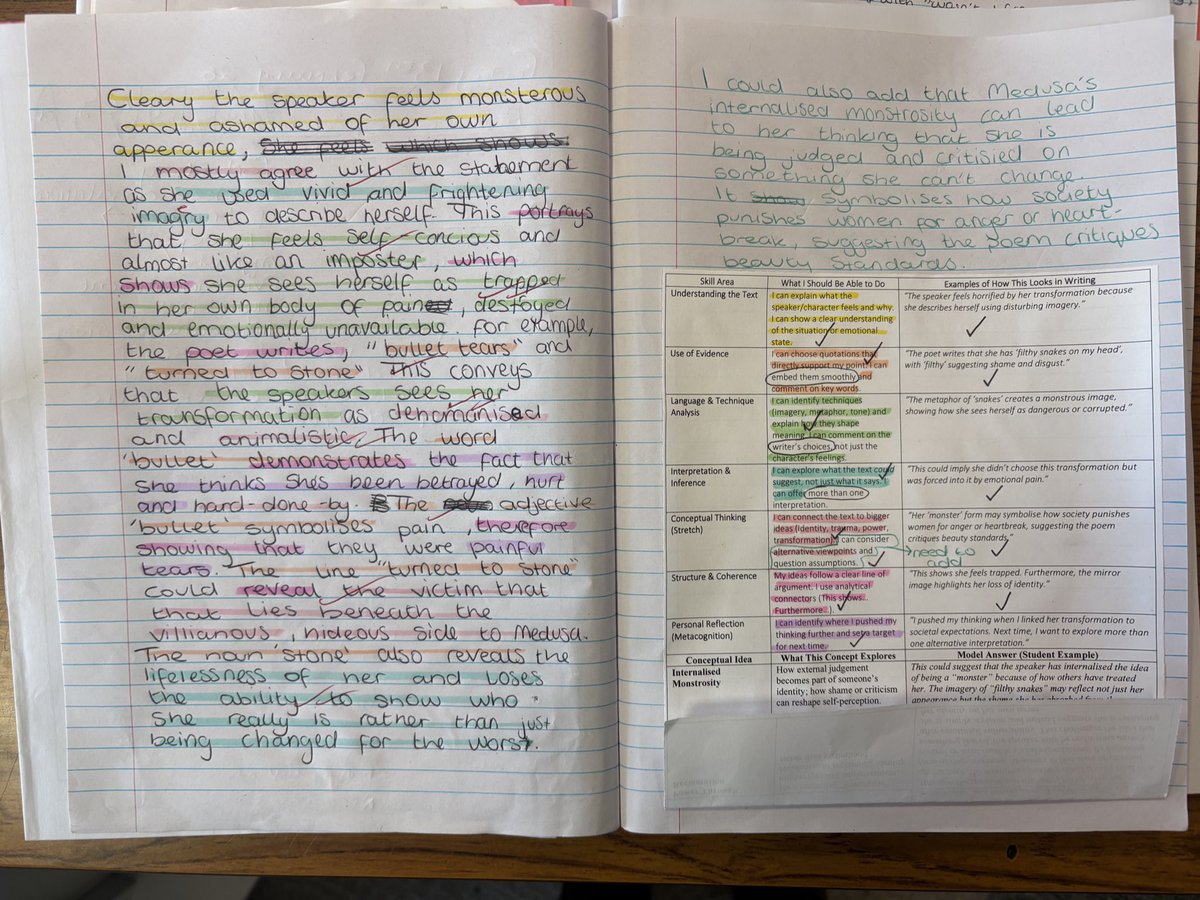 Cleary the speaker feels monsterous
and ashamed of her own
apperance, She feels which shows.
I mostly agree with the statement
as she used vivid and frightening
imagry to describe herself. This portrays
that she feels self-concious and
almost like an imposter, which
shows she sees herself as trapped
in her own body of pain, destoyed
and emotionally unavailable. For example,
the poet writes, "bullet tears" and
"turned to stone" This conveys
that the speakers sees her
transformation as dehumanised
and animalistic. The word
'bullet' demonstrates the fact that
she thinks she's been betrayed, hurt
and hard-done-by. The adjective
'bullet' symbolises pain, therefore
showing that they were painful
tears. The line "turned to stone"
could reveal the victim that
that lies beneath the
villianous, hideous side to Medusa.
The noun 'stone' also reveals the
lifelessness of her and loses
the ability to show who
she really is rather than just
being changed for the worst.
I could also add that Medusa's
internalised monstrosity can lead
to her thinking that she is
being judged and critisied on
something she can't change.
It show symbolises how society
punishes women for anger or heart-
break, suggesting the poem critiques
beauty standards.
Skill Area What I Should Be Able to Do Examples of How This Looks in Writing
Understanding the Text
I can explain what the
speaker/character feels and why.
I can show a clear understanding
of the situation or emotional
state.
"The speaker feels horrified by her transformation because
she describes herself using disturbing imagery."
Use of Evidence
I can choose quotations that
directly support my point. I can
embed them smoothly and
comment on key words.
"The poet writes that she has 'filthy snakes on my head',
with 'filthy' suggesting shame and disgust."
Language & Technique
Analysis
I can identify techniques
(imagery, metaphor, tone) and
explain how they shape
meaning. I can comment on the
writer's choices, not just the
character's feelings.
"The metaphor of 'snakes' creates a monstrous image,
showing how she sees herself as dangerous or corrupted."
Interpretation &
Inference
I can explore what the text could
suggest, not just what it says. I
can offer more than one
interpretation.
"This could imply she didn't choose this transformation but
was forced into it by emotional pain."
Conceptual Thinking
(Stretch)
I can connect the text to bigger
ideas (identity, trauma, power,
transformation). I can consider
alternative viewpoints and
question assumptions.
"Her 'monster' form may symbolise how society punishes
women for anger or heartbreak, suggesting the poem
critiques beauty standards."
need to
add
Structure & Coherence
My ideas follow a clear line of
argument. I use analytical
connectors (This shows...
Furthermore...).
"This shows she feels trapped. Furthermore, the mirror
image highlights her loss of identity."
Personal Reflection
(Metacognition)
I can identify where I pushed my
thinking further and set a target
for next time.
"I pushed my thinking when I linked her transformation to
societal expectations. Next time, I want to explore more than
one alternative interpretation."
Conceptual Idea What This Concept Explores Model Answer (Student Example)
Internalised
Monstrosity
How external judgement
becomes part of someone's
identity; how shame or criticism
can reshape self-perception.
This could suggest that the speaker has internalised the idea
of being a "monster" because of how others have treated
her. The imagery of "filthy snakes" may reflect not just her